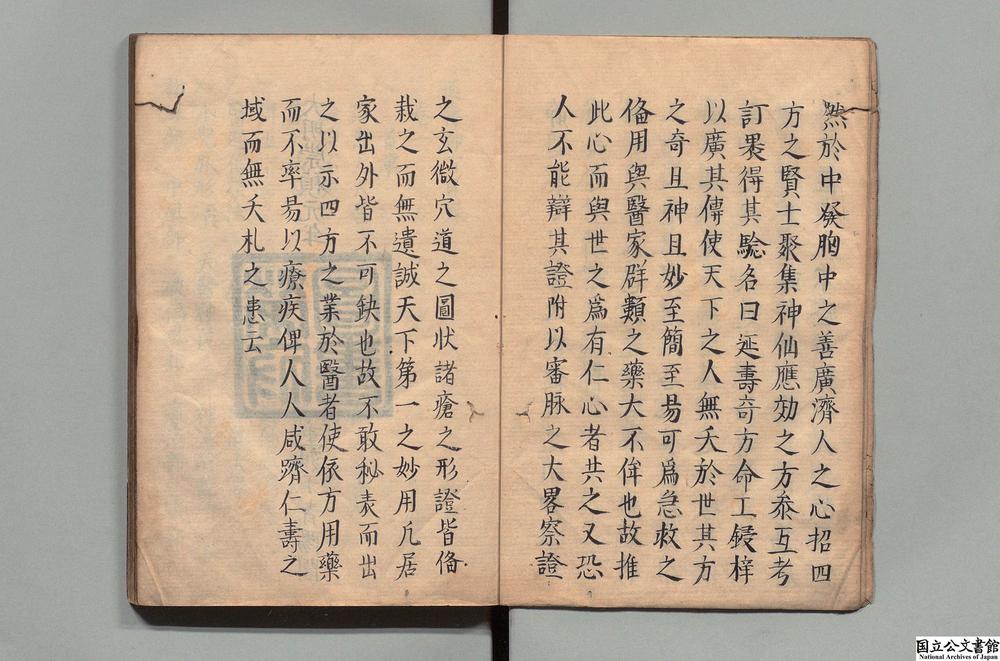 然於中發胸中之善廣濟人之心招四
方之賢士聚集神仙應効之方叅互考
訂累得其騐名曰延壽奇方命工鋟梓
以廣其傳使天下之人無夭於世其方
之奇且神且妙至簡至易可爲急救之
俻用與醫家群類之藥大不侔也故推
此心而與世之爲有仁心者共之又恐
人不能辯其證附以審脉之大畧察證
之玄微穴道之圖狀諸瘡之形證皆俻
栽之而無遺誠天下第一之妙用凢居
家出外皆不可缺也故不敢秘表而出
之以示四方之業於醫者使依方用藥
而不率昜以療疾俾人人咸躋仁壽之
域而無夭札之患云
国立公文書館
National Archives of Japan